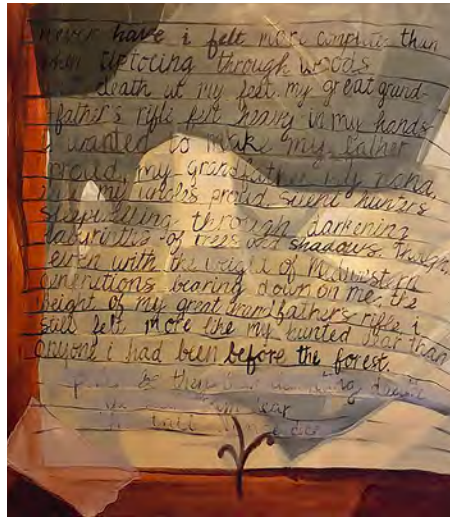 never have i felt more complete than
when tiptoeing through woods
death at my feet. my great grand-
father's rifle felt heavy in my hands
i wanted to make my father
proud, my grandfather my nana,
my uncles proud. silent hunters
through darkening
labyrinths of trees and shadows. though,
even with the weight of midwestern
generations bearing down on me, the
weight of my great grandfather's rifle i
still felt more like my hunted dear than
anyone i had been before the forest.
dear